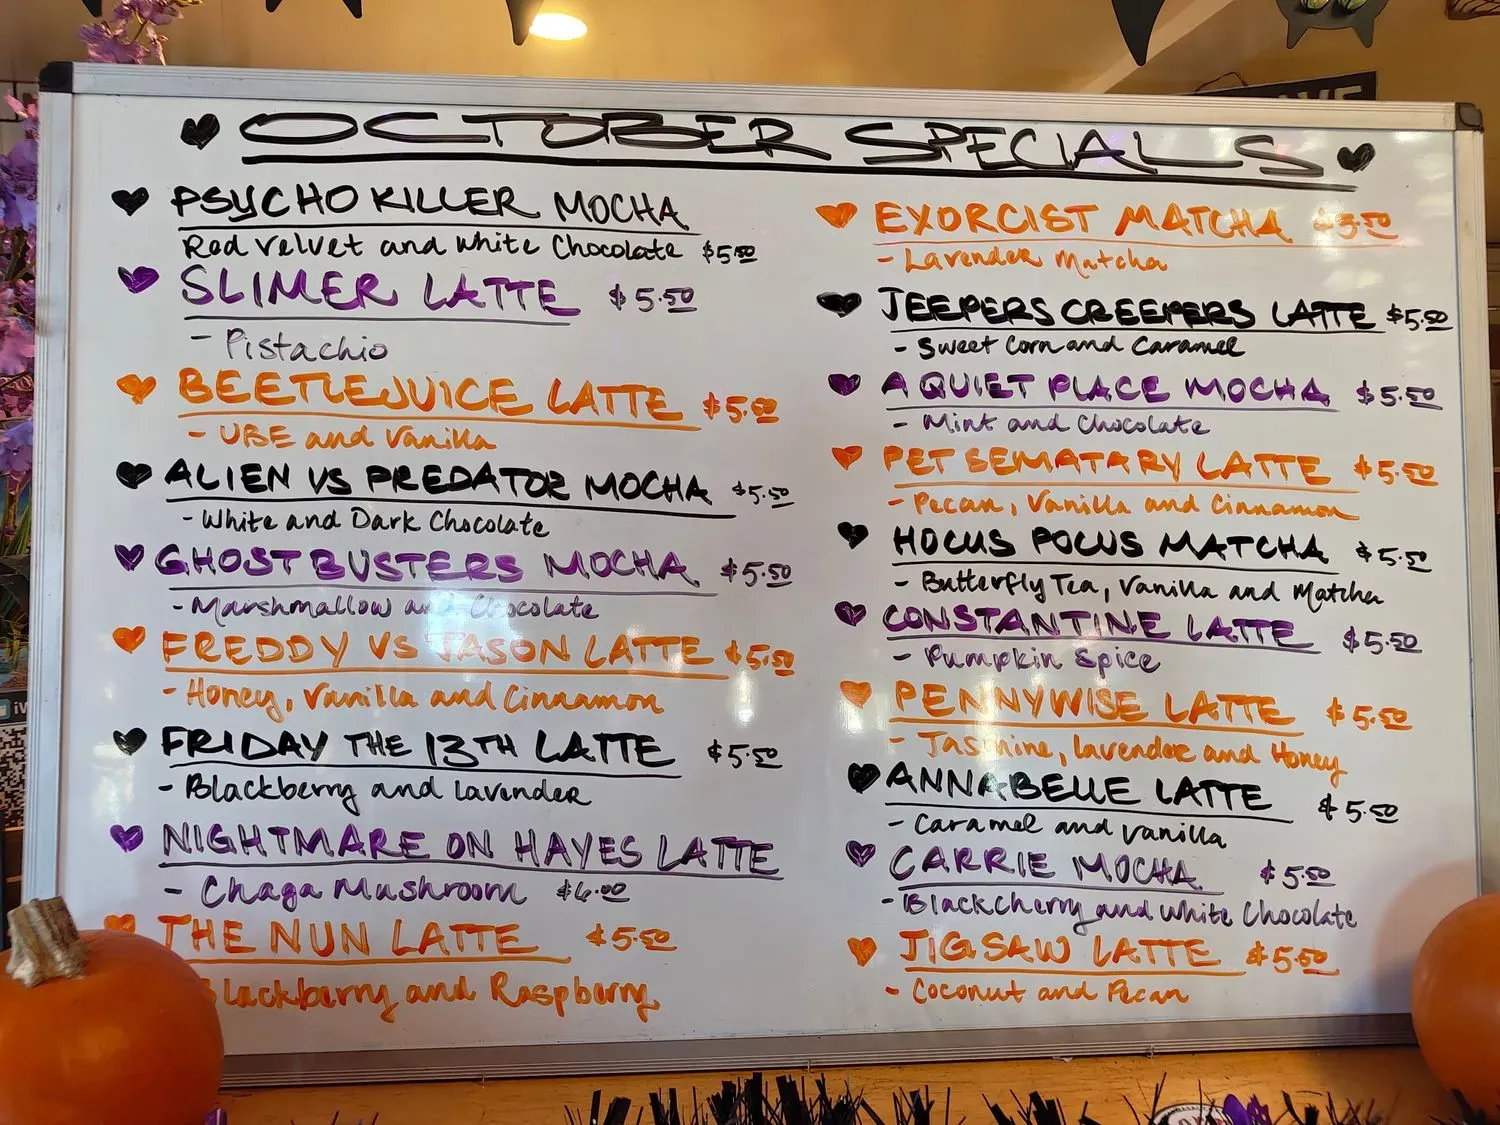 OCTOBER SPECIALS
PSYCHO KILLER MOCHA
Red Velvet and White Chocolate $5.50
SLIMER LATTE $5.50
- Pistachio
BEETLEJUICE LATTE $5.50
- UBE and Vanilla
ALIEN VS PREDATOR MOCHA $5.50
- White and Dark Chocolate
GHOSTBUSTERS MOCHA $5.50
- Marshmallow and Chocolate
FREDDY VS JASON LATTE $5.50
- Honey, Vanilla and Cinnamon
FRIDAY THE 13TH LATTE $5.50
- Blackberry and lavender
NIGHTMARE ON HAYES LATTE
- Chaga Mushroom $6.00
THE NUN LATTE $5.50
Blackberry and Raspberry
EXORCIST MATCHA $5.50
- Lavender Matcha
JEEPERS CREEPERS LATTE $5.50
- Sweet Corn and Caramel
A QUIET PLACE MOCHA $5.50
- Mint and Chocolate
PET SEMATARY LATTE $5.50
- Pecan, Vanilla and Cinnamon
HOCUS POCUS MATCHA $5.50
- Butterfly Tea, Vanilla and Matcha
CONSTANTINE LATTE $5.50
- Pumpkin Spice
PENNYWISE LATTE $5.50
- Jasmine, lavender and Honey
ANNABELLE LATTE $5.50
- Caramel and Vanilla
CARRIE MOCHA $5.50
- Black Cherry and White Chocolate
JIGSAW LATTE $5.50
- Coconut and Pecan